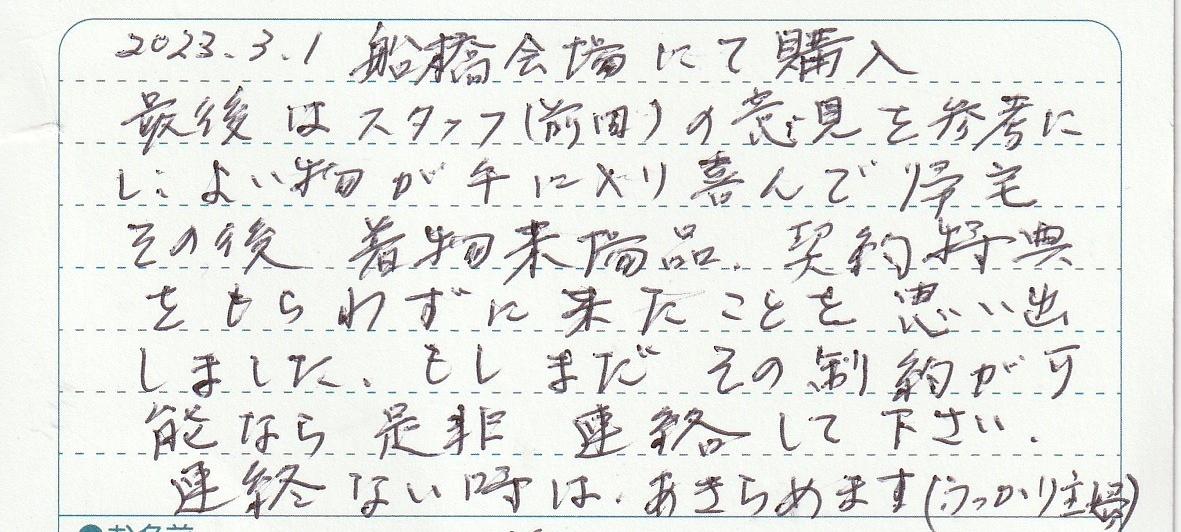 2023.3.1 船橋会場にて購入
最後はスタッフ(前田)の意見を参考に
し、よい物が手に入り喜んで帰宅
その後 着物来場品、契約特典
をもらわずに来たことを思い出
しました、もしまだその制約が可
能なら是非 連絡して下さい.
連絡ない時は、あきらめます(うっかり主婦)